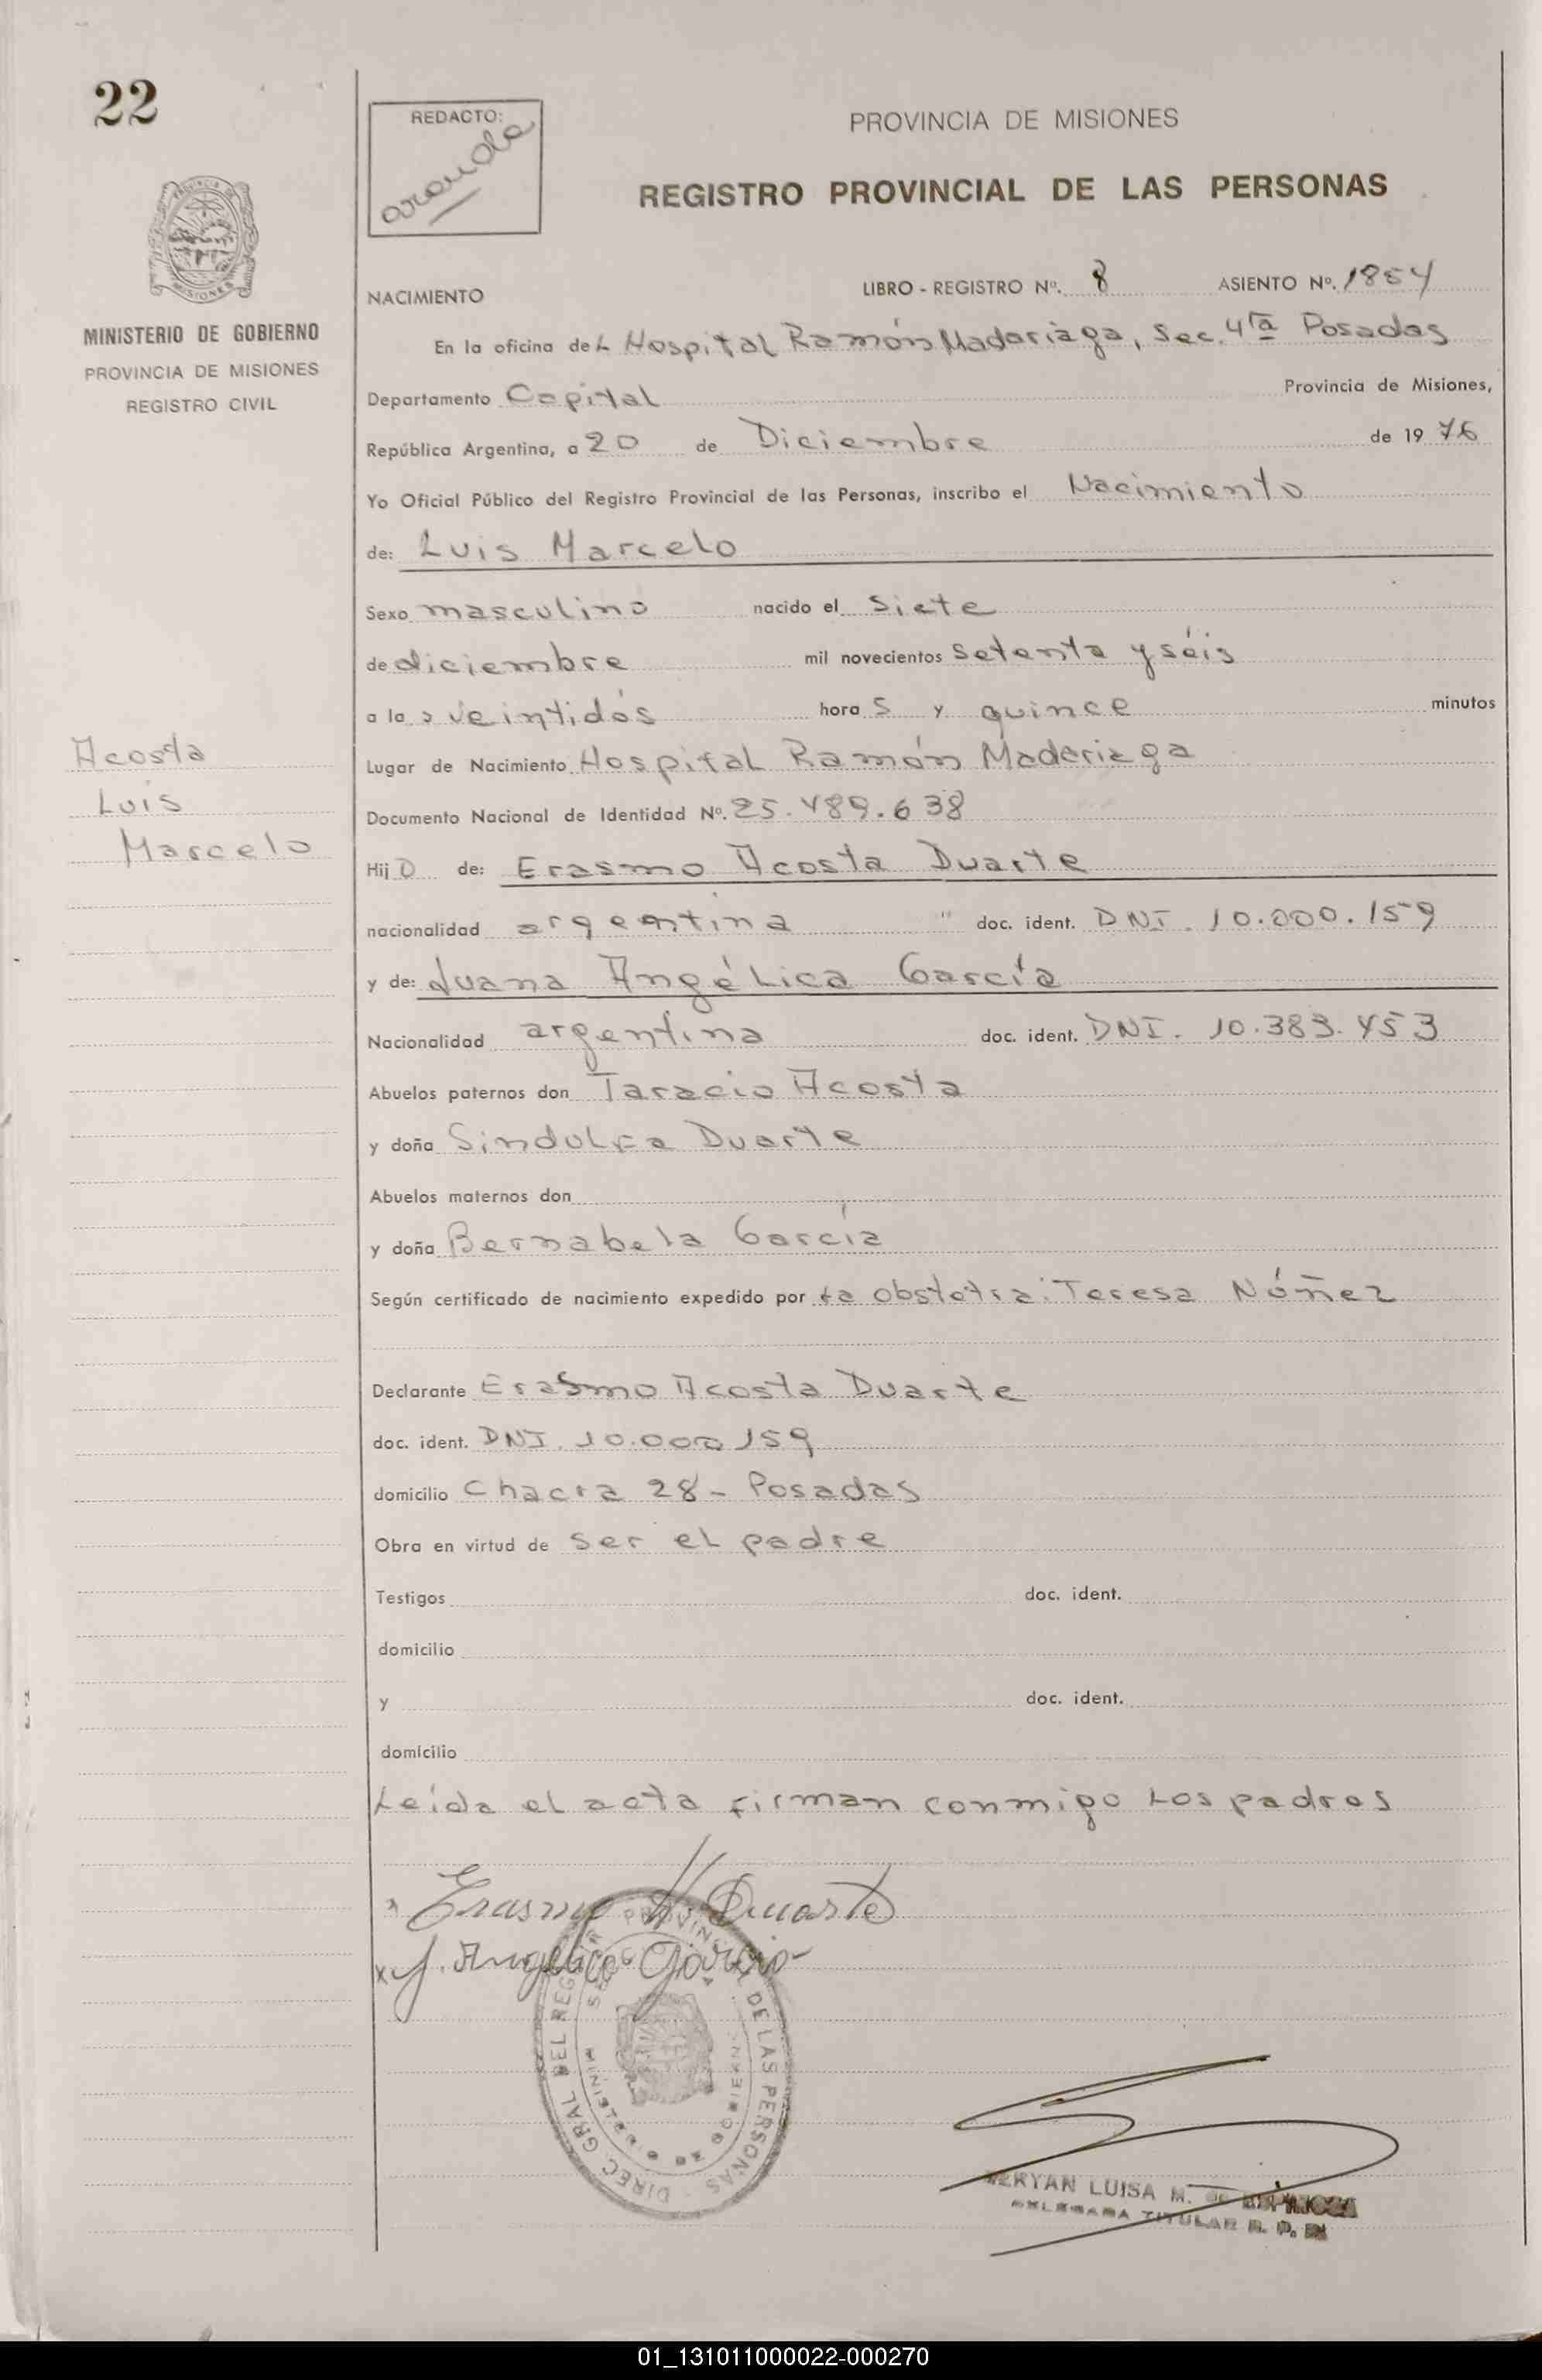 22
REDACTO:
PROVINCIA DE MISIONES
REGISTRO PROVINCIAL DE LAS PERSONAS
MINISTERIO DE GOBIERNO
PROVINCIA DE MISIONES
REGISTRO CIVIL
NACIMIENTO LIBRO - REGISTRO Nº. 8 ASIENTO Nº. 1854
En la oficina del Hospital Ramón Madariaga, Sec. 4ta Posadas
Departamento Capital Provincia de Misiones,
República Argentina, a 20 de Diciembre de 19 76
Yo Oficial Público del Registro Provincial de las Personas, inscribo el Nacimiento
de: Luis Marcelo
Sexo masculino nacido el siete
de diciembre mil novecientos setenta y séis
a las veintidós horas y quince minutos
Acosta
Luis
Marcelo
Lugar de Nacimiento Hospital Ramón Maderiaga
Documento Nacional de Identidad Nº. 25.489.638
Hijo de: Erasmo Acosta Duarte
nacionalidad argentina doc. ident. DNI. 10.000.159
y de: Juana Angélica García
Nacionalidad argentina doc. ident. DNI. 10.383.453
Abuelos paternos don Taracio Acosta
y doña Sindulfa Duarte
Abuelos maternos don
y doña Bernabela García
Según certificado de nacimiento expedido por la obstetra: Teresa Núñez
Declarante Erasmo Acosta Duarte
doc. ident. DNI. 10.000 159
domicilio Chacra 28 - Posadas
Obra en virtud de ser el padre
Testigos doc. ident.
domicilio
y doc. ident.
domicilio
Leída el acta firman conmigo los padres
Erasmo A. Duarte
x J. Angélica García
DIREC. GRAL DEL REG. PROVINCIAL DE LAS PERSONAS
MINISTERIO DE GOBIERNO
LUISA M. de ESPINOZA
DELEGADA TITULAR R. P.
01_131011000022-000270